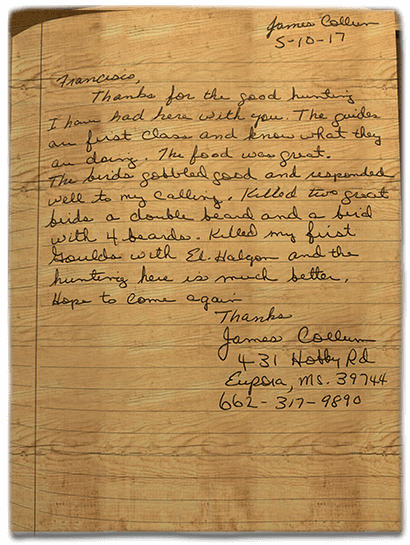 James Collum
5-10-17
Francisco,
Thanks for the good hunting
I have had here with you. The guides
are first class and know what they
are doing. The food was great.
The birds gobbled good and responded
well to my calling. Killed two great
birds a double beard and a bird
with 4 beards. Killed my first
Goulds with Ed. Halgon and the
hunting here is much better.
Hope to come again
Thanks
James Collum
431 Hobby Rd
Eupora, MS. 39744
662-317-9890